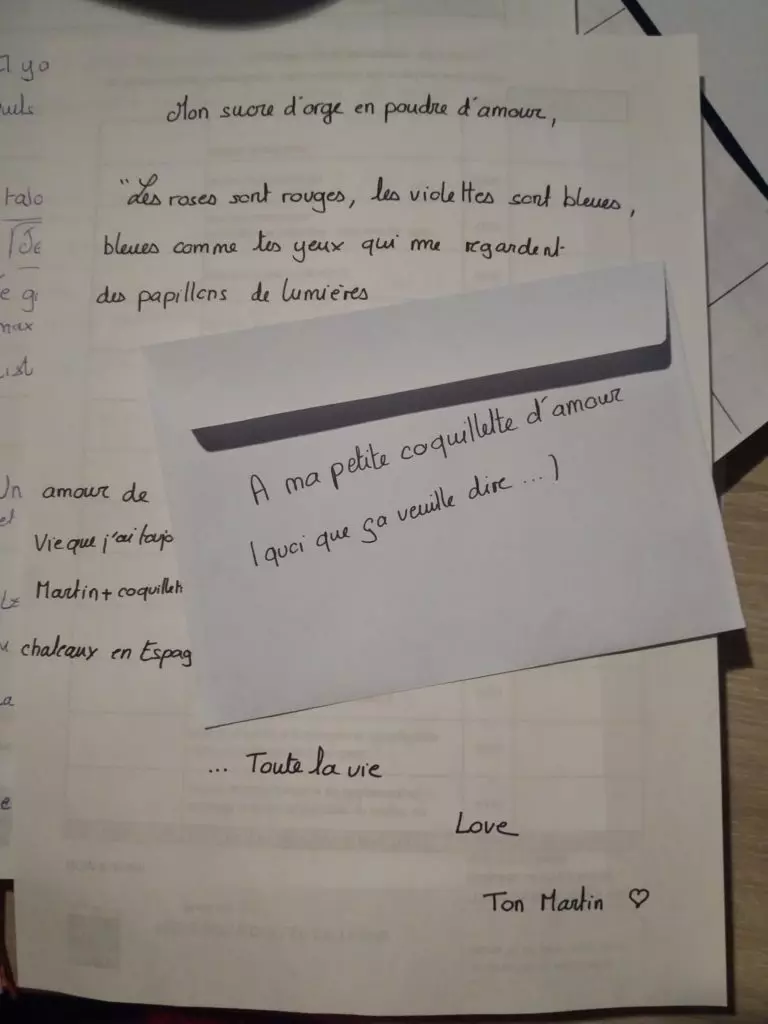 Mon sucre d'orge en poudre d'amour,
"Les roses sont rouges, les violettes sont bleues,
bleues comme tes yeux qui me regardent
des papillons de lumières
A ma petite coquillette d'amour
(quoi que ça veuille dire ...)
Un amour de
Vie que j'ai toujo
Martin + coquillett
chateaux en Espag
... Toute la vie
Love
Ton Martin ♡